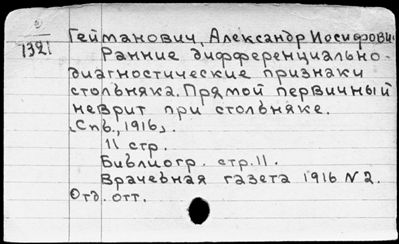 1321
Гейманович, Александр Иосифович
Ранние дифференциально-
диагностические признаки
столбняка. Прямой первичный
неврит при столбняке.
[Спб., 1916].
11 стр.
Библиогр. стр. 11.
Врачебная газета 1916 № 2.
Отд. отт.